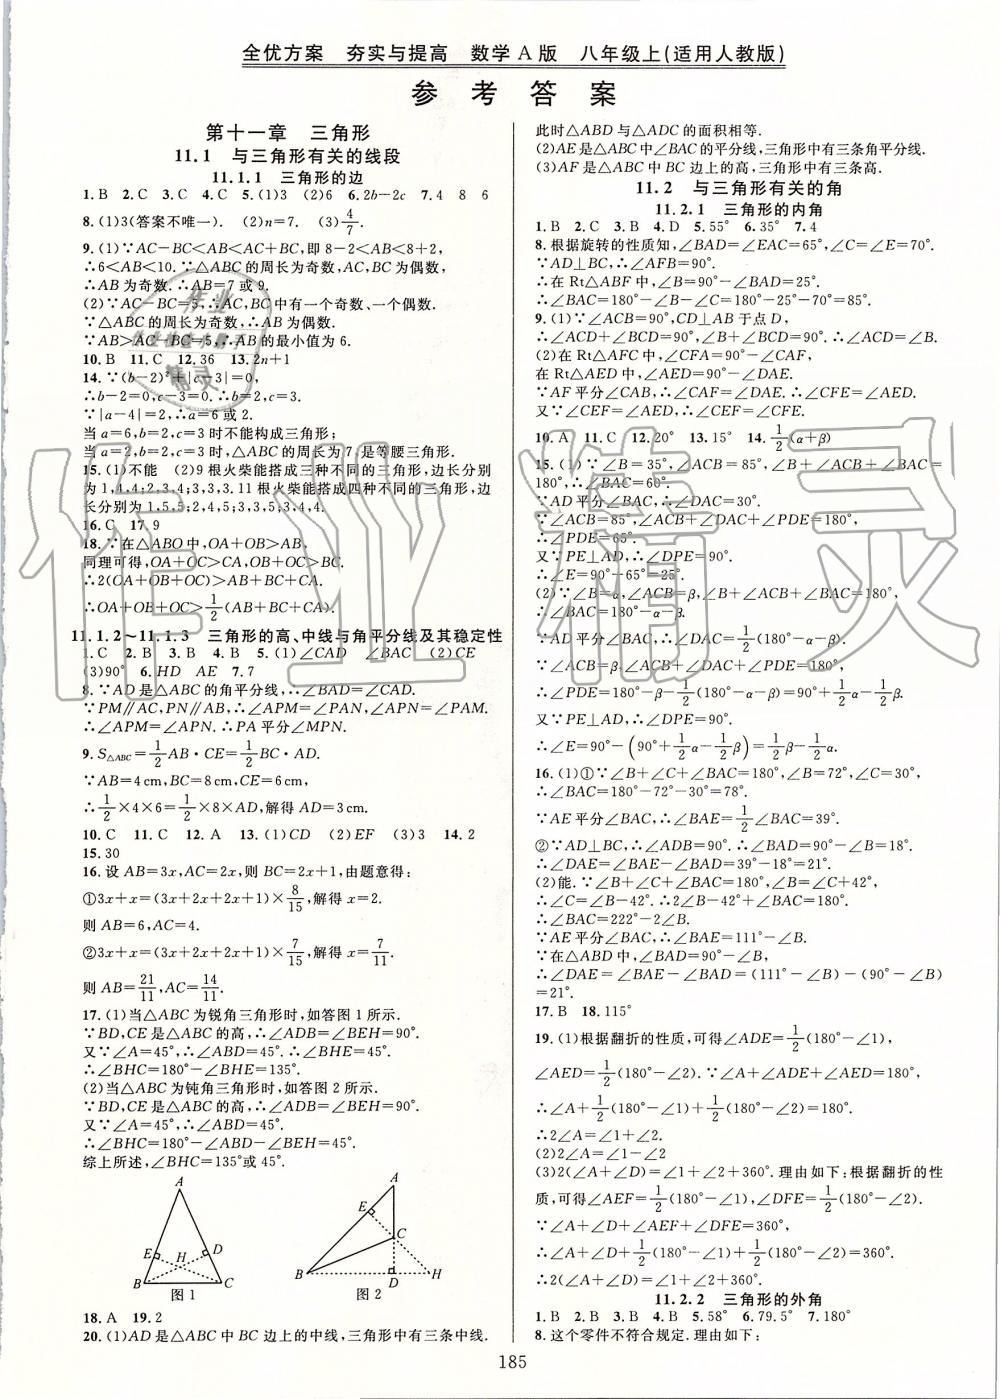 全优方案　夯实与提高　数学A版　八年级上(适用人教版)
参考答案
第十一章　三角形
11.1　与三角形有关的线段
11.1.1　三角形的边
1.B　2.C　3.C　4.C　5.(1)3　(2)6　6.2b-2c　7.4　8　6
8.(1)3(答案不唯一).　(2)n=7.　(3)4/7.
9.(1)∵AC-BC<AB<AC+BC,即8-2<AB<8+2,
∴6<AB<10.∵△ABC的周长为奇数,AC,BC为偶数,
∴AB为奇数.∴AB=7或9.
(2)∵AC-BC=5,∴AC,BC中有一个奇数、一个偶数.
∵△ABC的周长为奇数,∴AB为偶数.
∵AB>AC-BC=5,∴AB的最小值为6.
10.B　11.C　12.36　13.2n+1
14.∵(b-2)²+|c-3|=0,
∴b-2=0,c-3=0.∴b=2,c=3.
∵|a-4|=2.∴a=6或2.
当a=6,b=2,c=3时不能构成三角形;
当a=2,b=2,c=3时,△ABC的周长为7,是等腰三角形.
15.(1)不能　(2)9根火柴能搭成三种不同的三角形,边长分别
为1,4,4;2,3,4;3,3,3.11根火柴能搭成四种不同的三角形,边
长分别为1,5,5;2,4,5;3,3,5;3,4,4.
16.C　17.9
18.∵在△ABO中,OA+OB>AB.
同理可得,OA+OC>CA,OB+OC>BC.
∴2(OA+OB+OC)>AB+BC+CA.
∴OA+OB+OC>1/2(AB+BC+CA).
11.1.2~11.1.3　三角形的高、中线与角平分线及其稳定性
1.C　2.B　3.B　4.B　5.(1)∠CAD　∠BAC　(2)CE
(3)90°　6.HD　AE　7.7
8.∵AD是△ABC的角平分线,∴∠BAD=∠CAD.
∵PM∥AC,PN∥AB,∴∠APM=∠PAN,∠APN=∠PAM.
∴∠APM=∠APN.∴PA平分∠MPN.
9.S△ABC=1/2AB·CE=1/2BC·AD.
∵AB=4cm,BC=8cm,CE=6cm,
∴1/2×4×6=1/2×8×AD,解得AD=3cm.
10.C　11.C　12.A　13.(1)CD　(2)EF　(3)3　14.2
15.30
16.设AB=3x,AC=2x,则BC=2x+1,由题意得:
①3x+x=(3x+2x+2x+1)×8/15,解得x=2.
则AB=6,AC=4.
②3x+x=(3x+2x+2x+1)×7/15,解得x=7/11.
则AB=21/11,AC=14/11.
17.(1)当△ABC为锐角三角形时,如答图1所示.
∵BD,CE是△ABC的高,∴∠ADB=∠BEH=90°.
又∵∠A=45°,∴∠ABD=45°.∴∠BHE=45°.
∴∠BHC=180°-∠BHE=135°.
(2)当△ABC为钝角三角形时,如答图2所示.
∵BD,CE是△ABC的高,∴∠ADB=∠BEH=90°.
又∵∠A=45°,∴∠ABD=45°.
∴∠BHC=180°-∠ABD-∠BEH=45°.
综上所述,∠BHC=135°或45°.
A
E
H
D
B
C
图1
A
E
C
B
D
H
图2
18.A　19.2
20.(1)AD是△ABC中BC边上的中线,三角形中有三条中线.
此时△ABD与△ADC的面积相等.
(2)AE是△ABC中∠BAC的平分线,三角形中有三条角平分线.
(3)AF是△ABC中BC边上的高,三角形中有三条高.
11.2　与三角形有关的角
11.2.1　三角形的内角
1.B　2.C　3.B　4.D　5.55°　6.35°　7.4
8.根据旋转的性质知,∠BAD=∠EAC=65°,∠C=∠E=70°.
∵AD⊥BC,∴∠AFB=90°.
∴在Rt△ABF中,∠B=90°-∠BAD=25°.
∴∠BAC=180°-∠B-∠C=180°-25°-70°=85°.
9.(1)∵∠ACB=90°,CD⊥AB于点D,
∴∠ACD+∠BCD=90°,∠B+∠BCD=90°.∴∠ACD=∠B.
(2)在Rt△AFC中,∠CFA=90°-∠CAF,
在Rt△AED中,∠AED=90°-∠DAE.
∵AF平分∠CAB,∴∠CAF=∠DAE.∴∠CFE=∠AED.
又∵∠CEF=∠AED,∴∠CEF=∠CFE.
10.A　11.C　12.20°　13.15°　14.1/2(α+β)
15.(1)∵∠B=35°,∠ACB=85°,∠B+∠ACB+∠BAC=
180°,∴∠BAC=60°.
∵AD平分∠BAC,∴∠DAC=30°.
∵∠ACB=85°,∠ACB+∠DAC+∠PDE=180°,
∴∠PDE=65°.
又∵PE⊥AD,∴∠DPE=90°.
∴∠E=90°-65°=25°.
(2)∵∠B=α,∠ACB=β,∠B+∠ACB+∠BAC=180°,
∴∠BAC=180°-α-β.
∵AD平分∠BAC,∴∠DAC=1/2(180°-α-β).
∵∠ACB=β,∠ACB+∠DAC+∠PDE=180°,
∴∠PDE=180°-β-1/2(180°-α-β)=90°+1/2α-1/2β.
又∵PE⊥AD,∴∠DPE=90°.
∴∠E=90°-(90°+1/2α-1/2β)=1/2β-1/2α.
16.(1)①∵∠B+∠C+∠BAC=180°,∠B=72°,∠C=30°,
∴∠BAC=180°-72°-30°=78°.
∵AE平分∠BAC,∴∠BAE=1/2∠BAC=39°.
②∵AD⊥BC,∴∠ADB=90°.∴∠BAD=90°-∠B=18°.
∴∠DAE=∠BAE-∠BAD=39°-18°=21°.
(2)能.∵∠B+∠C+∠BAC=180°,∠B=∠C+42°,
∴∠C=∠B-42°.∴2∠B-42°+∠BAC=180°.
∴∠BAC=222°-2∠B.
∵AE平分∠BAC,∴∠BAE=111°-∠B.
∵在△ABD中,∠BAD=90°-∠B,
∴∠DAE=∠BAE-∠BAD=(111°-∠B)-(90°-∠B)
=21°.
17.B　18.115°
19.(1)根据翻折的性质,可得∠ADE=1/2(180°-∠1),
∠AED=1/2(180°-∠2).∵∠A+∠ADE+∠AED=180°,
∴∠A+1/2(180°-∠1)+1/2(180°-∠2)=180°.
∴2∠A=∠1+∠2.
(2)2∠A=∠2
(3)2(∠A+∠D)=∠1+∠2+360°.理由如下:根据翻折的性
质,可得∠AEF=1/2(180°-∠1),∠DFE=1/2(180°-∠2).
∵∠A+∠D+∠AEF+∠DFE=360°,
∴∠A+∠D+1/2(180°-∠1)+1/2(180°-∠2)=360°.
∴2(∠A+∠D)=∠1+∠2+360°.
11.2.2　三角形的外角
1.B　2.B　3.B　4.B　5.58°　6.79.5°　7.180°
8.这个零件不符合规定.理由如下:
185
作业精灵